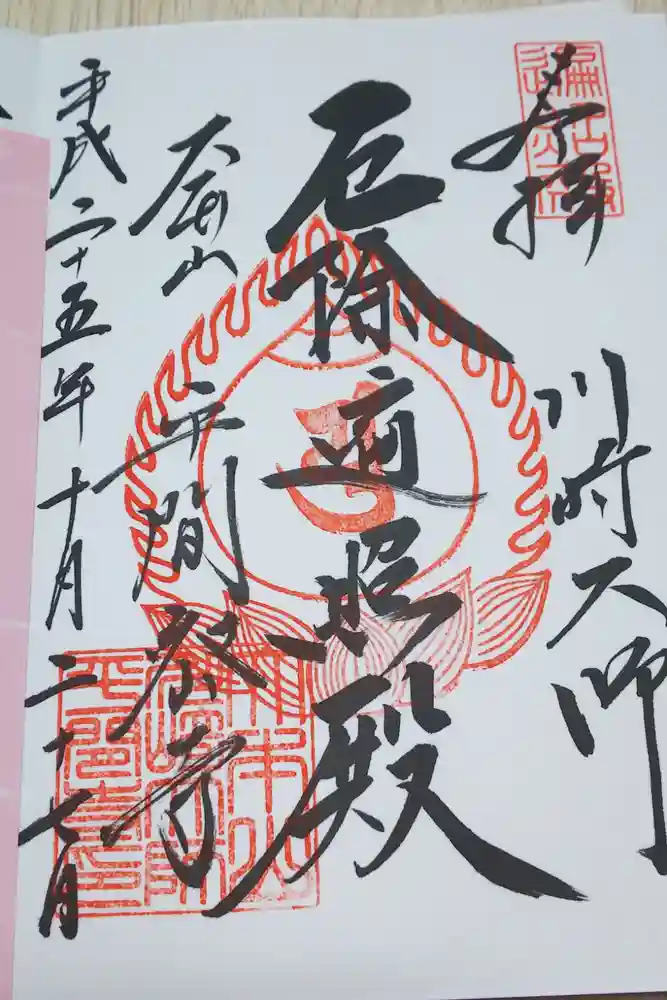 奉拝
川崎大師
厄除遍照殿
山
平間
寺
平成二十五年十月二十七日